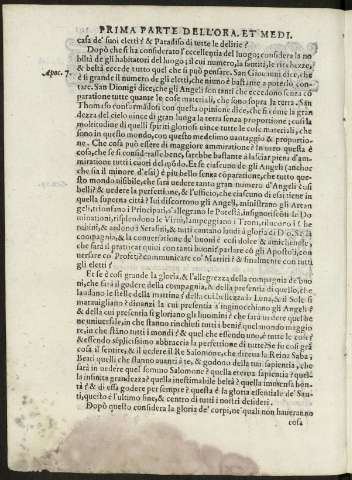 PRIMA PARTE DELL'ORA. ET MEDI.
casa de' suoi eletti? & Paradiso di tutte le delitie?
Dopò che si ha considerato l'eccellenza del luogo; considera la no
biltà de gli habitatori del luogo; il cui numero, la santità, le ricchezze,
& beltà eccede tutto quel che si può pensare. San Giouanni dice, che
Apoc. 7.
è si grande il numero de gli eletti, che niuno è bastante a poterlo con-
tare. San Dionigi dice, che gli Angeli son tanti che eccedono senza co
paratione tutte quante le cose materiali, che sono sopra la terra. San
Thomaso conformandosi con questa opinione dice, che si come la gran
dezza del cielo vince di gran lunga la terra senza proportione; cosi la
moltitudine di quelli spiriti gloriosi vince tutte le cose materiali, che
sono in questo mondo, con questo medesimo vantaggio & proportio-
ne. Che cosa può essere di maggiore ammiratione? In vero questa è
cosa, che se si considerasse bene, sarebbe bastante a lasciar piena d'am-
miratione tutti i cuori del mondo. Et se ciascuno de gli Angeli (anchor
che sia il minore d'essi) è più bello senza comparatione, che tutto que-
sto mondo visibile, che sarà vedere tanto gran numero d'Angeli cosi
belli? & vedere la perfettione, & l'officio, che ciascuno di essi tiene in
quella superna città? Iui discorrono gli Angeli, ministrano gli Arcan
geli, trionfano i Principati, s'allegrano le Potestà, insignoriscono le Do
minationi, risplendono le Virtù, lampeggiano i Troni, rilucono i Che
rubini, & ardono i Serafini, & tutti cantano laudi à gloria di Dio. Se la
compagnia, & la conuersatione de' buoni è cosi dolce & amicheuole,
che sarà il praticar quiui con tanti buoni? parlare cò gli Apostoli, con
uersare co' Profeti? communicare co' Martiri? & finalmente con tutti
gli eletti?
Et se è cosi grande la gloria, & l'allegrezza della compagnia de' buo
ni, che sarà il godere della compagnia, & della presentia di quello, che
laudano le stelle della mattina? della cui bellezza la Luna, & il Sole si
marauigliano? dinanzi la cui presentia s'inginocchiano gli Angeli?
& della cui presentia si gloriano gli huomini? che sarà uedere quel be
ne uniuersale, in che stanno rinchiusi tutti i beni? quel mondo maggio
re, in che stanno tutti i mondi? & quel che essendo uno, è tutte le cose?
& essendo semplicissimo abbraccia la perfettione di tutte? Se fu cosi grã
cosa il sentire, & il uedere il Re Salomone, che diceua la Reina Saba;
Beati quelli che stanno auanti à te, & godono della tua sapientia, che
sarà in uedere quel sommo Salomone? quella eterna sapientia? quella
la infinita grandezza? quella inestimabile beltà? quella immensa bon
tà? & di essa godere per sempre? questa è la gloria essentiale de' San-
ti, questo è l'ultimo fine, & centro di tutti i nostri desideri.
Dopò questo considera la gloria de' corpi, ne' quali non haueranno
cosa